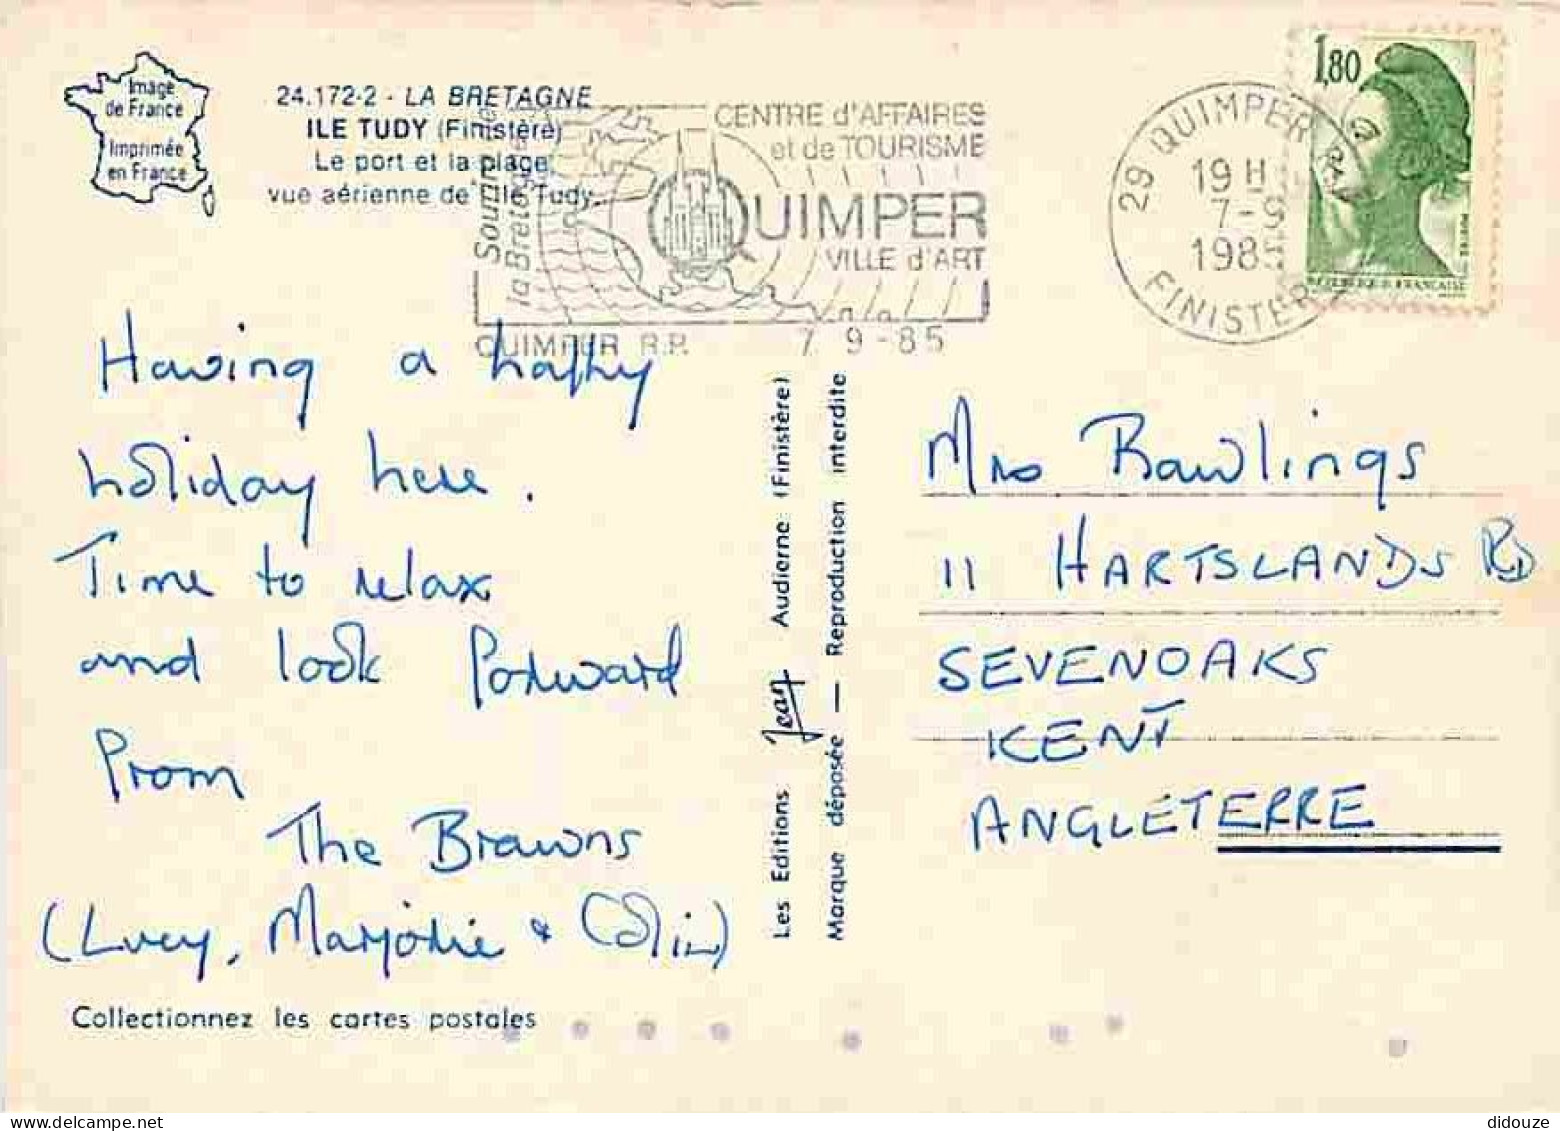 Image
de France
Imprimée
en France
24.172-2 - LA BRETAGNE
ILE TUDY (Finistère)
Le port et la plage,
vue aérienne de l'Ile Tudy.
la Bretagne
CENTRE d'AFFAIRES
et de TOURISME
QUIMPER
VILLE d'ART
QUIMPER R.P.
7 9-85
29 QUIMPER R.P.
19 H
7-9
1985
FINISTERE
1,80
REPUBLIQUE FRANÇAISE
Having a happy
holiday here.
Time to relax
and look forward
from
The Browns
(Lucy, Marjorie & Colin)
Collectionnez les cartes postales
Les Editions Jean Audierne (Finistère)
Marque déposée — Reproduction interdite
Mrs Rawlings
11 HARTSLANDS RD
SEVENOAKS
KENT
ANGLETERRE
didouze